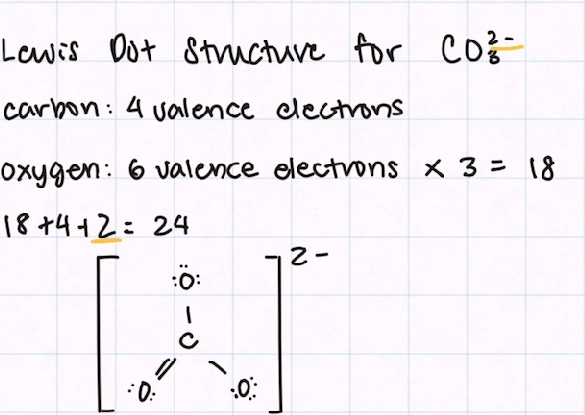 Lewis Dot Structure for CO₃²⁻
carbon: 4 valence electrons
oxygen: 6 valence electrons x 3 = 18
18+4+2= 24
[ ]²⁻
:Ö:
C
:O: :O: